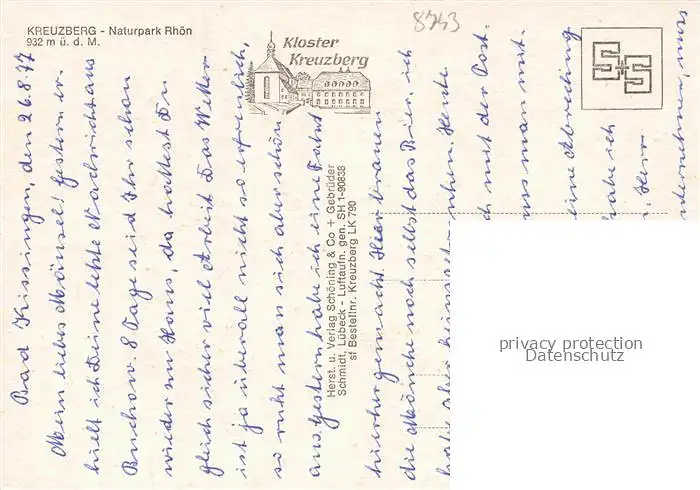 KREUZBERG - Naturpark Rhön
932 m ü. d. M.
8743
Kloster
Kreuzberg
Bad Kissingen, den 26.8.77
Mein liebes Mäusel! Gestern er-
hielt ich Deine letzte Nachricht aus
Buchow. 8 Tage seid Ihr schon
wieder zu Haus, da hattest Du
gleich sicher viel Arbeit. Das Wetter
ist ja überall nicht so erfreulich,
so ruht man sich aber schön
aus. Gestern habe ich eine Fahrt
hierher gemacht. Hier brauen
die Mönche noch selbst das Bier, ich
habe
Heute
mit der Post-
muss man mit-
eine Abreching
habe ich
Herr
unternehmen, muss
Herst. u. Verlag Schöning & Co + Gebrüder
Schmidt, Lübeck - Luftaufn. gen. SH 1-90838
sf Bestellnr. Kreuzberg LK 790
privacy protection
Datenschutz